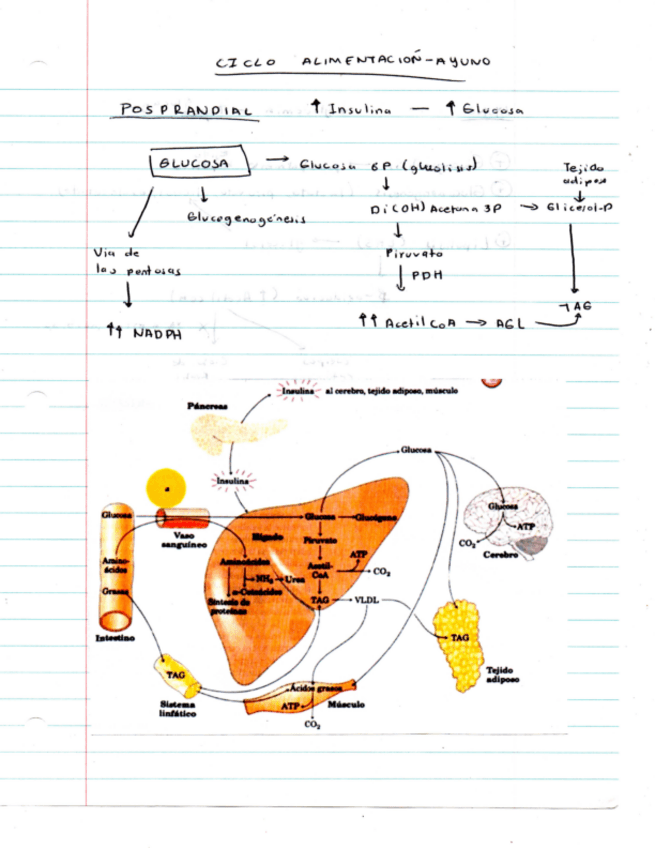 CICLO ALIMENTACIÓN-AYUNO
POSPRANDIAL ↑ Insulina — ↑ Glucosa
GLUCOSA → Glucosa 6P (glucolisis)
Tejido
adiposo
Glucogenogénesis
Di(OH) Acetona 3P → Glicerol-P
Via de
las pentosas
Piruvato
PDH
TAG
↑↑ NADPH
↑↑ Acetil CoA → AGL
Insulina al cerebro, tejido adiposo, músculo
Páncreas
Glucosa
Insulina
Glucosa
Vaso
sanguíneo
Glucosa
Glucógeno
Hígado
Piruvato
Glucosa
ATP
CO₂
Cerebro
Amino-
ácidos
Aminoácidos
Acetil-
CoA
ATP
CO₂
NH₃
Urea
α-Cetoácidos
Síntesis de
proteínas
TAG
VLDL
Grasas
Intestino
TAG
Tejido
adiposo
TAG
Sistema
linfático
Ácidos grasos
ATP
Músculo
CO₂